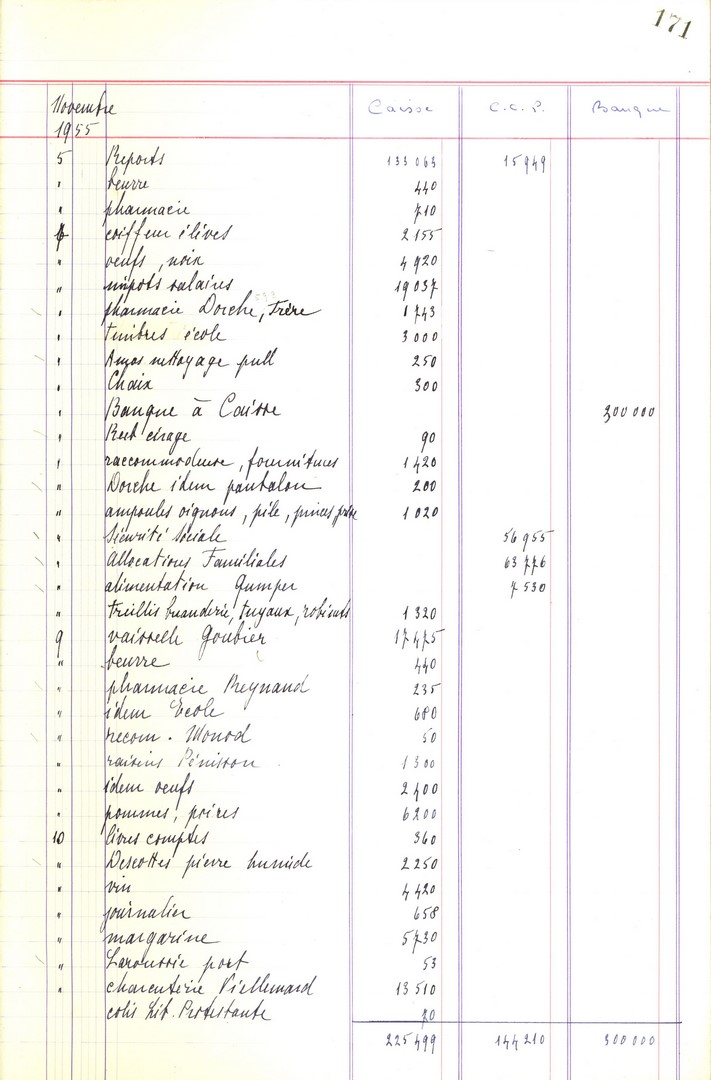 171
Novembre Caisse C.C.P. Banque
1955
5 Reports 133 063 15 949
" beurre 440
" pharmacie 710
6 coiffeur élèves 2 155
" oeufs, noix 4 920
" impots salaires 19 037
" pharmacie Dorche, Frère 1 743
" timbres école 3 000
" Amos nettoyage pull 250
" Chaix 300
" Banque à Caisse 300 000
" Rest cirage 90
" raccommodeuse, fournitures 1 420
" Dorche idem pantalon 200
" ampoules oignons, pile, princes 1 020
" Sécurité Sociale 56 955
" Allocations Familiales 63 776
" alimentation Gumper 7 530
" treillis buanderie, tuyaux, robinets 1 320
9 vaisselle Goubier 17 475
" beurre 440
" pharmacie Reynaud 235
" idem Ecole 680
" recom. Monod 50
" raisins Pénisson 1 300
" idem oeufs 2 400
" pommes, poires 6 200
10 livres comptes 360
" Descottes pierre humide 2 250
" vin 4 420
" journalier 658
" margarine 5 730
" Laroussie port 53
" charcuterie Viellemard 13 510
colis Lib. Protestante 70
225 499 144 210 300 000